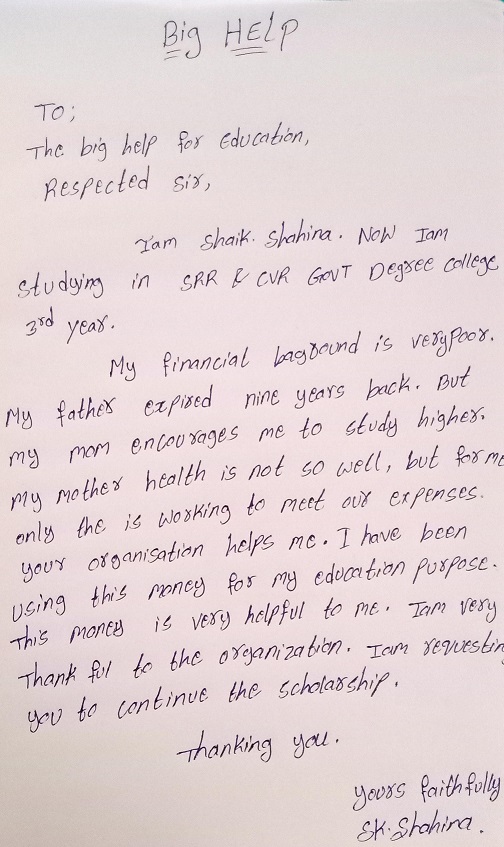 Big HElP
To;
The big help for Education,
Respected sir,
Iam Shaik. Shahina. Now Iam
studying in SRR & CVR GovT Degree college
3rd year.
My financial baground is verypoor.
My father expired nine years back. But
my mom encourages me to study higher.
My mother health is not so well, but for me
only the is working to meet our expenses.
your organisation helps me. I have been
using this money for my education purpose.
This money is very helpful to me. Iam very
Thank ful to the organization. Iam requestin
you to continue the scholarship.
Thanking you.
yours faithfully
SK. Shahina.